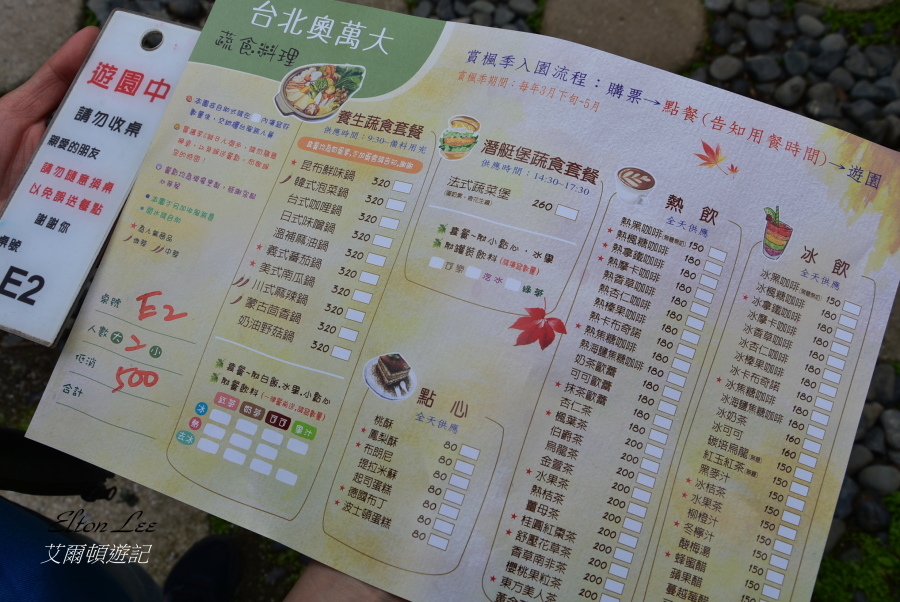 遊園中
請勿收桌
親愛的朋友
請勿隨意換桌
以免誤送餐點
謝謝你
桌號
E2
台北奧萬大
蔬食料理
賞楓季入園流程：購票→點餐(告知用餐時間)→遊園
賞楓季期間：每年3月下旬~5月
桌號 E2
人數 大 2 小
低消 500
合計
養生蔬食套餐
供應時間：9:30~備料用完
昆布鮮味鍋 320
韓式泡菜鍋 320
台式咖哩鍋 320
日式味噌鍋 320
溫補麻油鍋 320
義式番茄鍋 320
★美式南瓜鍋 320
川式麻辣鍋 320
蒙古茴香鍋 320
奶油野菇鍋 320
套餐~附白飯.水果.小點心
潛艇堡蔬食套餐
供應時間：14:30~17:30
法式蔬菜堡 260
套餐~附小點心、水果
點心
全天供應
桃酥 80
★鳳梨酥 80
★布朗尼 80
提拉米蘇 80
起司蛋糕 80
★德國布丁 80
★波士頓蛋糕 80
熱飲
全天供應
熱黑咖啡 150
熱楓糖咖啡 180
★熱拿鐵咖啡 180
★熱摩卡咖啡 180
熱香草咖啡 180
熱杏仁咖啡 180
熱榛果咖啡 180
熱卡布奇諾 180
★熱焦糖咖啡 180
熱海鹽焦糖咖啡 180
奶茶歐蕾
可可歐蕾
★抹茶歐蕾
杏仁茶
★楓葉茶
伯爵茶
烏龍茶
金萱茶
水果茶
熱桔茶
薑母茶
★桂圓紅棗茶
★舒壓花草茶
香草南非茶
櫻桃果粒茶
★東方美人茶
冰飲
全天供應
冰黑咖啡 150
冰楓糖咖啡 180
★冰拿鐵咖啡 180
冰摩卡咖啡 180
冰香草咖啡 180
冰杏仁咖啡 180
冰榛果咖啡 180
冰卡布奇諾 180
★冰焦糖咖啡 180
冰海鹽焦糖咖啡 180
冰奶茶 160
冰可可 160
碳培烏龍
紅玉紅茶
黑麥汁
★冰桔茶
★水果茶
柳橙汁
★冬檸汁
酸梅湯
★蜂蜜醋
蘋果醋
蔓越莓醋
Elton Lee
艾爾頓遊記